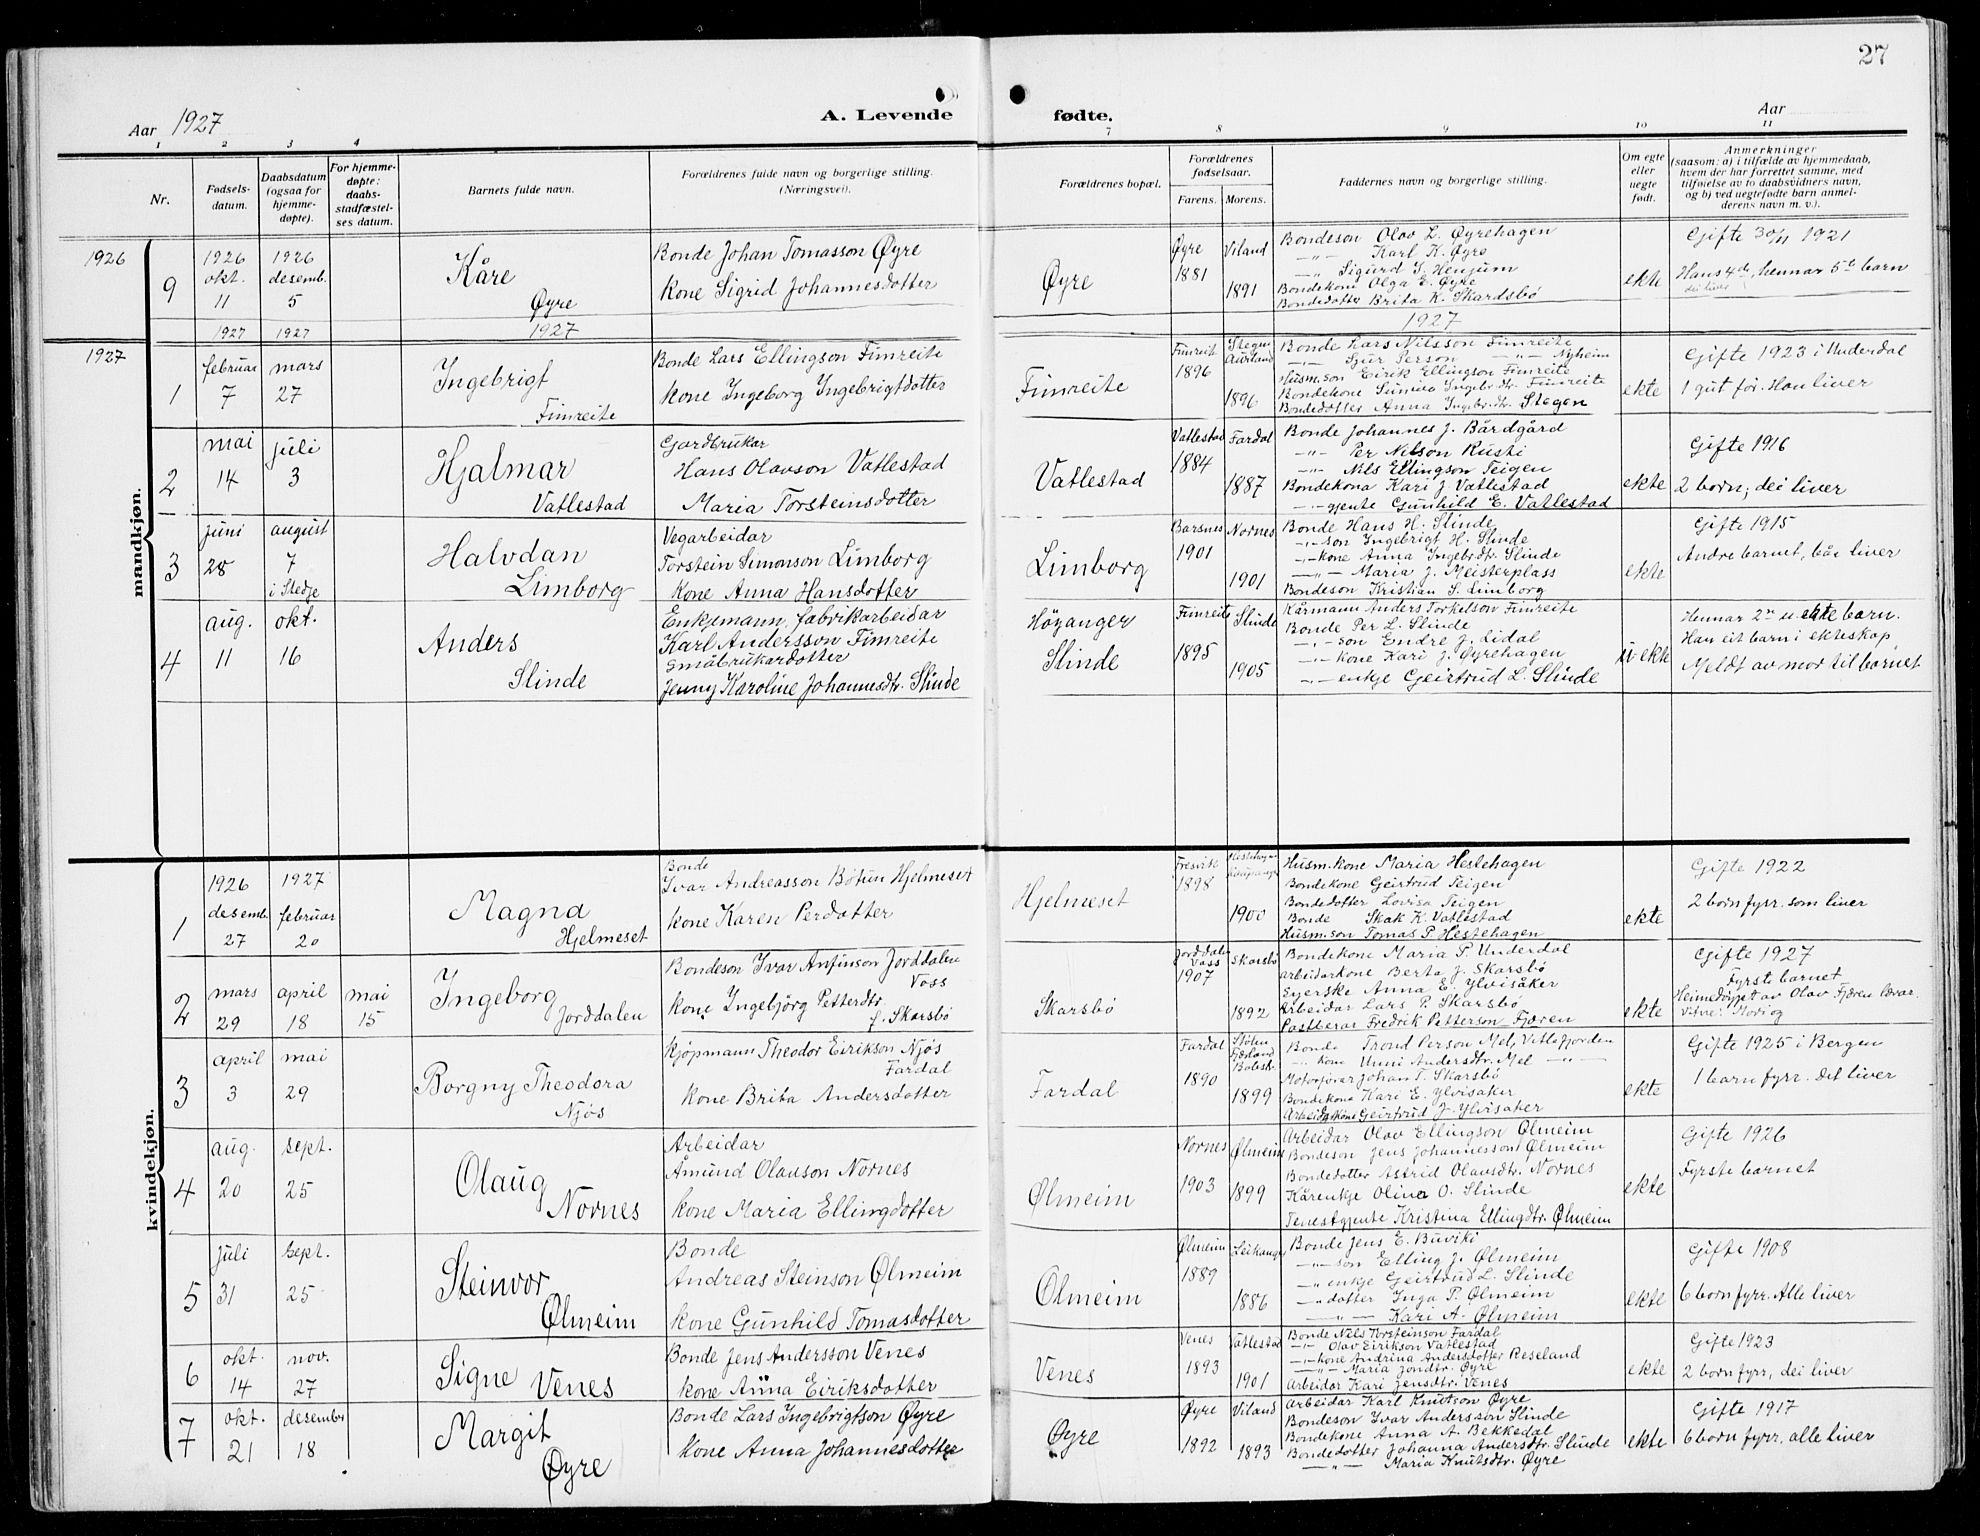 27
Aar 1927
A. Levende fødte.
Aar
1 2 3 4 7 8 9 10 11
Nr.
Fødsels-datum.
Daabsdatum (ogsaa for hjemme-døpte).
For hjemme-døpte: daabs-stadfæstel-ses datum.
Barnets fulde navn.
Forældrenes fulde navn og borgerlige stilling. (Næringsvei).
Forældrenes bopæl.
Forældrenes fødselsaar.
Farens. Morens.
Faddernes navn og borgerlige stilling.
Om egte eller uegte født.
Anmerkninger
(saasom: a) i tilfælde av hjemmedaab, hvem der har forrettet samme, med tilføielse av to daabsvidners navn, og b) ved uegtefødte barn anmelderens navn m. v.).
mandkjøn.
1926
9
1926 okt. 11
1926 desemb. 5
Kåre Øyre
Bonde Johan Tomasson Øyre
Kone Sigrid Johannesdotter
Øyre
Øyre 1881
Viland 1891
Bondeson Olav L. Øyrehagen
-"- Karl K. Øyre
-"- Sigurd S. Henjum
Bondekone Olga E. Øyre
Bondedotter Brita K. Skardsbø
ekte
Gifte 30/11 1921
Hans 4de, hennar 5te barn
dei liver
1927 1927 1927 1927
1927
1
februar 7
mars 27
Ingebrigt Fimreite
Bonde Lars Ellingson Fimreite
Kone Ingeborg Ingebrigtdotter
Fimreite
Fimreit 1896
Stegen Aurland 1896
Bonde Lars Nilsson Fimreite
-"- Sjur Person -"- Nyheim
Husm.son Eirik Ellingson Fimreite
Bondekone Sunniva Ingebr.dtr. Fimreite
Bondedotter Anna Ingebr.dtr. Stegen
ekte
Gifte 1923 i Underdal
1 gut før. Han liver
2
mai 14
juli 3
Hjalmar Vatlestad
Gardbrukar
Hans Olavson Vatlestad
Maria Torsteinsdotter
Vatlestad
Vatlestad 1884
Fardal 1887
Bonde Johannes J. Bårdgård
-"- Per Nilson Rusti
-"- Nils Ellingson Teigen
Bondekona Kari J. Vatlestad
-"- gjente Gunhild E. Vatlestad
ekte
Gifte 1916
2 born; dei liver
3
juni 28
august 7 i Stedje
Halvdan Limborg
Vegarbeidar
Torstein Simonson Limborg
Kone Anna Hansdotter
Limborg
Barsnes 1901
Nornes 1901
Bonde Hans H. Slinde
-"- son Ingebrigt H. Slinde
-"- kone Anna Ingebr.dtr. Slinde
-"-"- Maria J. Meisterplass
Bondeson Kristian S. Limborg
ekte
Gifte 1915
Andre barnet, båe liver
4
aug. 11
okt. 16
Anders Slinde
Enkjemann, fabrikarbeidar
Karl Andersson Fimreite
Småbrukardotter
Jenny Karoline Johannesdtr. Slinde
Höyanger
Slinde
Fimreite 1895
Slinde 1905
Kårmann Anders Torkelson Fimreite
Bonde Per L. Slinde
-"- son Endre J. Eidal
-"- kone Kari J. Øyrehagen
-"- enkje Geirtrud L. Slinde
u ekte
Hennar 2re u.ekte barn.
Han eit barn i ekteskap
Meldt av mor til barnet
kvindekjøn.
1
1926 desemb. 27
1927 februar 20
Magna Hjelmeset
Bonde
Ivar Andreasson Bøtun Hjelmeset
Kone Karen Perdotter
Hjelmeset
Fresvik 1898
1900
Husm.kone Maria Hestehagen
Bondekone Geirtrud Teigen
Bondedotter Lovisa Teigen
Bonde Skak K. Vatlestad
Husm.son Tomas P. Hestehagen
ekte
Gifte 1922
2 born fyrr. som liver
2
mars 29
april 18
mai 15
Ingeborg Jorddalen
Bondeson Ivar Anfinson Jorddalen
Voss
Kone Ingebjörg Petterdtr.
f. Skarsbø
Skarsbø
Jorddalen Voss 1907
Skarsbø 1892
Bondekone Maria P. Underdal
Arbeidarkone Berta J. Skarsbø
Eyerske Anna E. Ylvisåker
Arbeidar Lars P. Skarsbø
Postberar Fredrik Petterson Fjæren
ekte
Gifte 1927
Fyrste barnet
Heimedøypt av Olav Fjæren
3
april 3
mai 29
Borgny Theodora Njøs
Kjøpmann Theodor Eirikson Njøs
Fardal
Kone Brita Andersdotter
Fardal
Fardal 1890
Stølen Fjærland 1899
Bonde Trond Person Mel, Vetlefjorden
-"- kone Unni Andersdtr. Mel -"-
Motorfører Johan T. Skarsbø
Bondekona Kari E. Ylvisaker
Arbeidarkone Geirtrud J. Ylvisaker
ekte
Gifte 1925 i Bergen
1 barn fyrr. det liver
4
aug. 20
sept. 25
Olaug Nornes
Arbeidar
Åmund Olavson Nornes
Kone Maria Ellingdotter
Ølmeim
Nornes 1903
Ølmeim 1899
Arbeidar Olav Ellingson Ølmeim
Bondeson Jens Johannesson Ølmeim
Bondedotter Astrid Olavsdtr. Nornes
Kårenkje Olina O. Slinde
Tenestgjente Kristina Ellingdtr. Ølmeim
ekte
Gifte 1926
Fyrste barnet
5
juli 31
sept. 25
Steinvor Ølmeim
Bonde
Andreas Steinson Ølmeim
Kone Gunhild Tomasdotter
Olmeim
Ølmeim 1889
Leikanger 1886
Bonde Jens E. Buviki
-"- son Elling J. Ølmeim
-"- enkje Geirtrud L. Slinde
-"- dotter Inga P. Ølmeim
-"- Kari A. Ølmeim
ekte
Gifte 1908
6 born fyrr. Alle liver
6
okt. 14
nov. 27
Signe Venes
Bonde Jens Andersson Venes
Kone Anna Eiriksdotter
Venes
Venes 1893
Vatlestad 1901
Bonde Nils Torsteinson Fardal
-"- Olav Eirikson Vatlestad
-"- kone Andrina Andersdotter Reseland
-"-"- Maria Jondtr. Øyre
Arbeidar Kari Jensdtr. Venes
ekte
Gifte 1923
2 born fyrr, dei liver
7
okt. 21
desember 18
Margit Øyre
Bonde Lars Ingebrigtson Øyre
Kone Anna Johannesdotter
Øyre
Øyre 1892
Viland 1893
Arbeidar Karl Knutson Øyre
Bondeson Ivar Andersson Slinde
Bondekone Anna A. Bekkedal
Bondedotter Johanna Andersdtr. Slinde
-"-"- Maria Knutsdtr. Øyre
ekte
Gifte 1917
6 born fyrr, alle liver